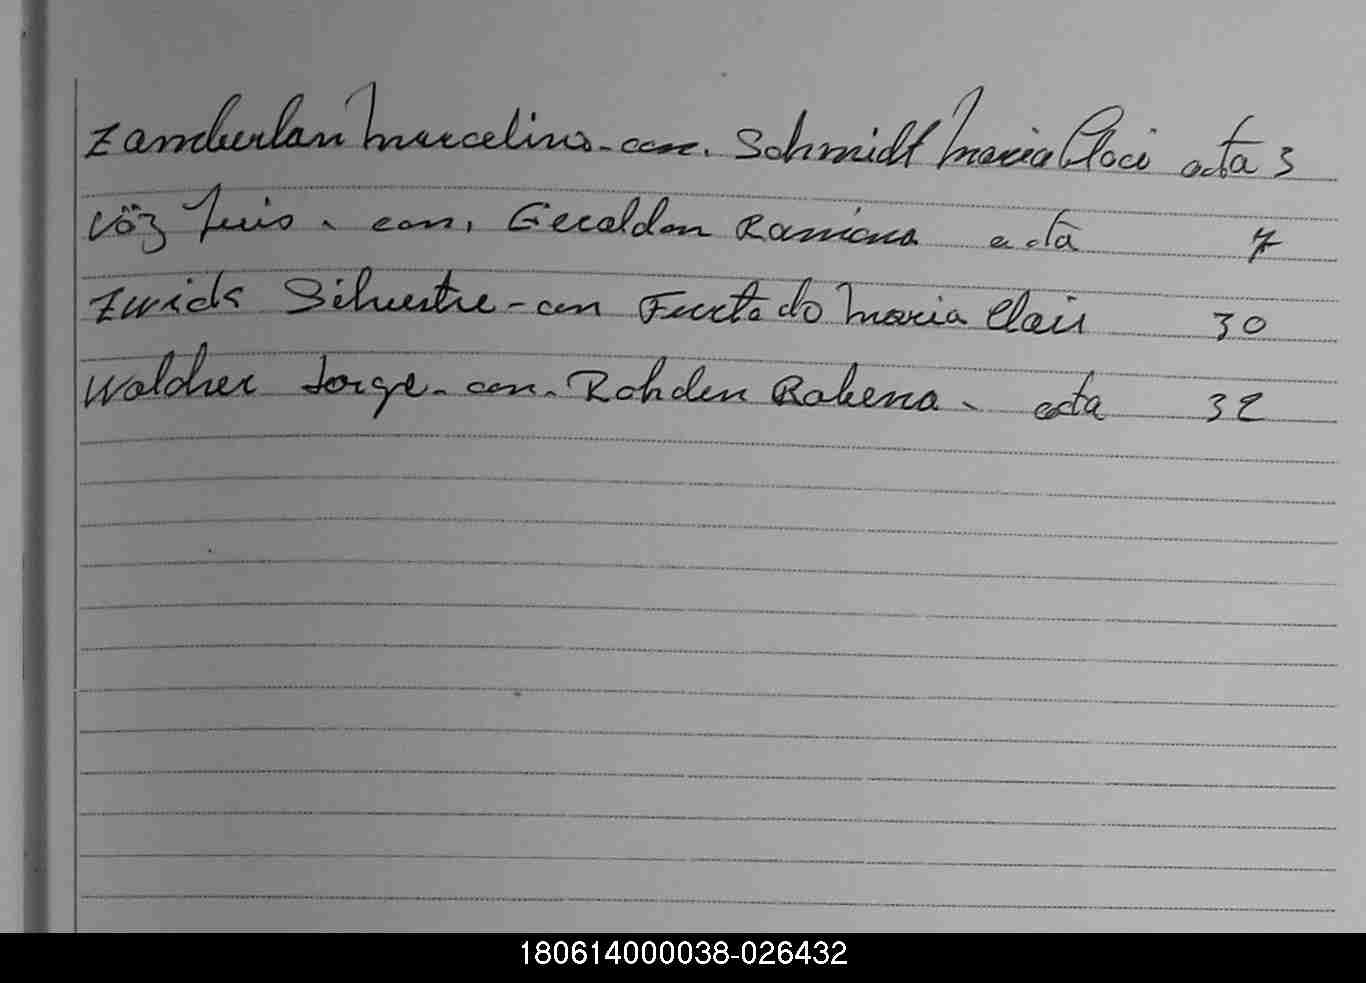 Zamberlan Marcelino - con. Schmidt Maria Claci acta 3
Vöz Luis - con. Geraldon Ramona acta 7
Zwick Silvestre - con Furtado Maria Clair 30
Walcher Jorge - con. Rohden - acta 32
180614000038-026432